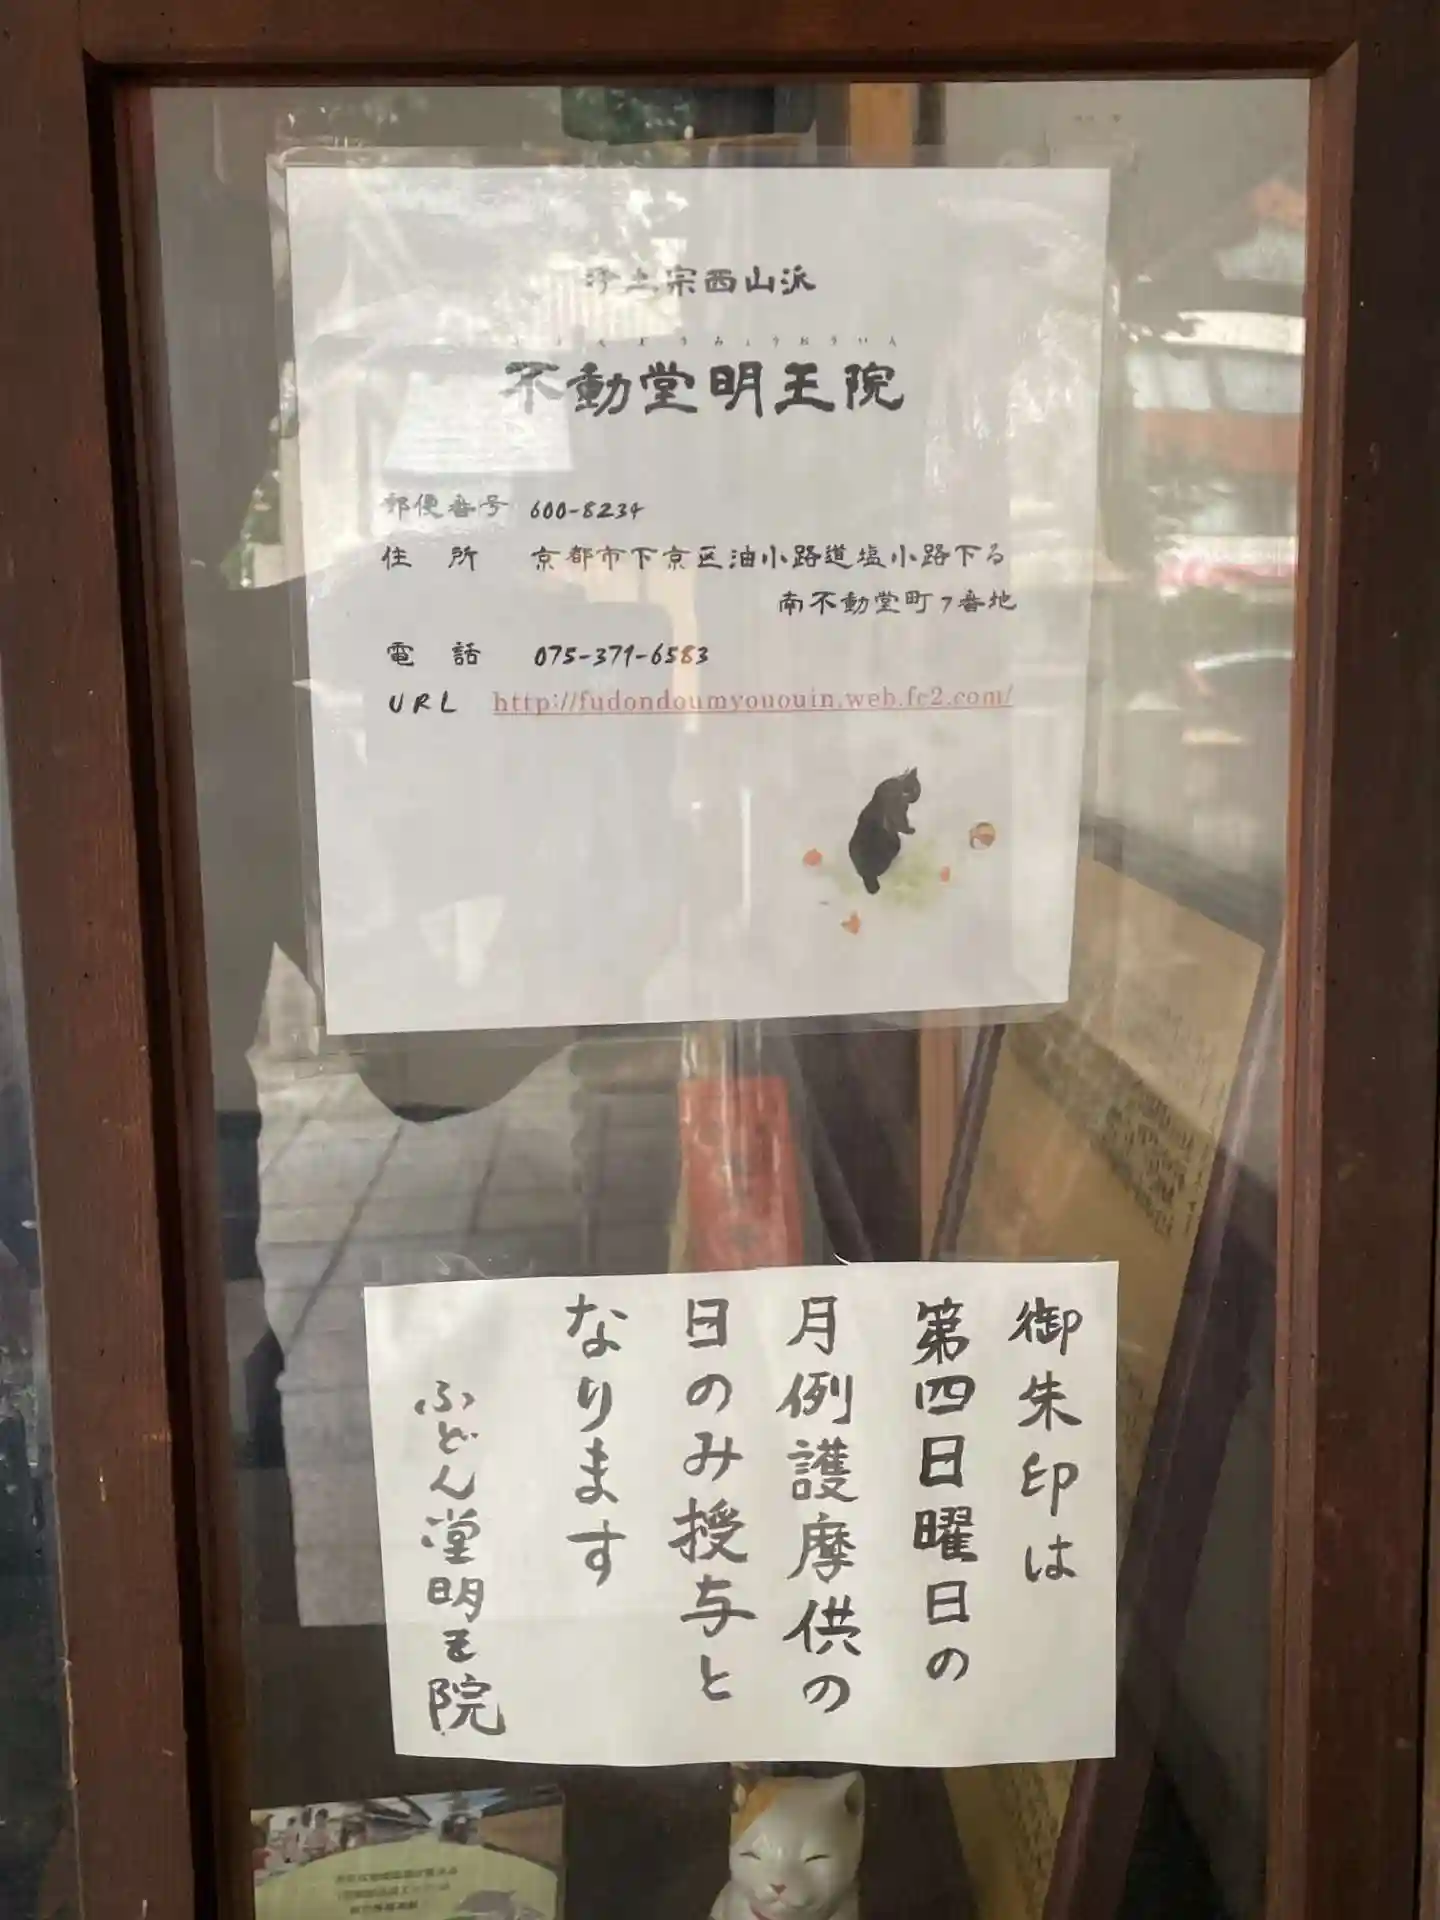 浄土宗西山派
不動堂明王院
郵便番号 600-8234
住 所 京都市下京区油小路道塩小路下る
南不動堂町7番地
電 話 075-371-6583
URL http://fudondoumyououin.web.fc2.com/
御朱印は
第四日曜日の
月例護摩供の
日のみ授与と
なります
ふどん堂明王院